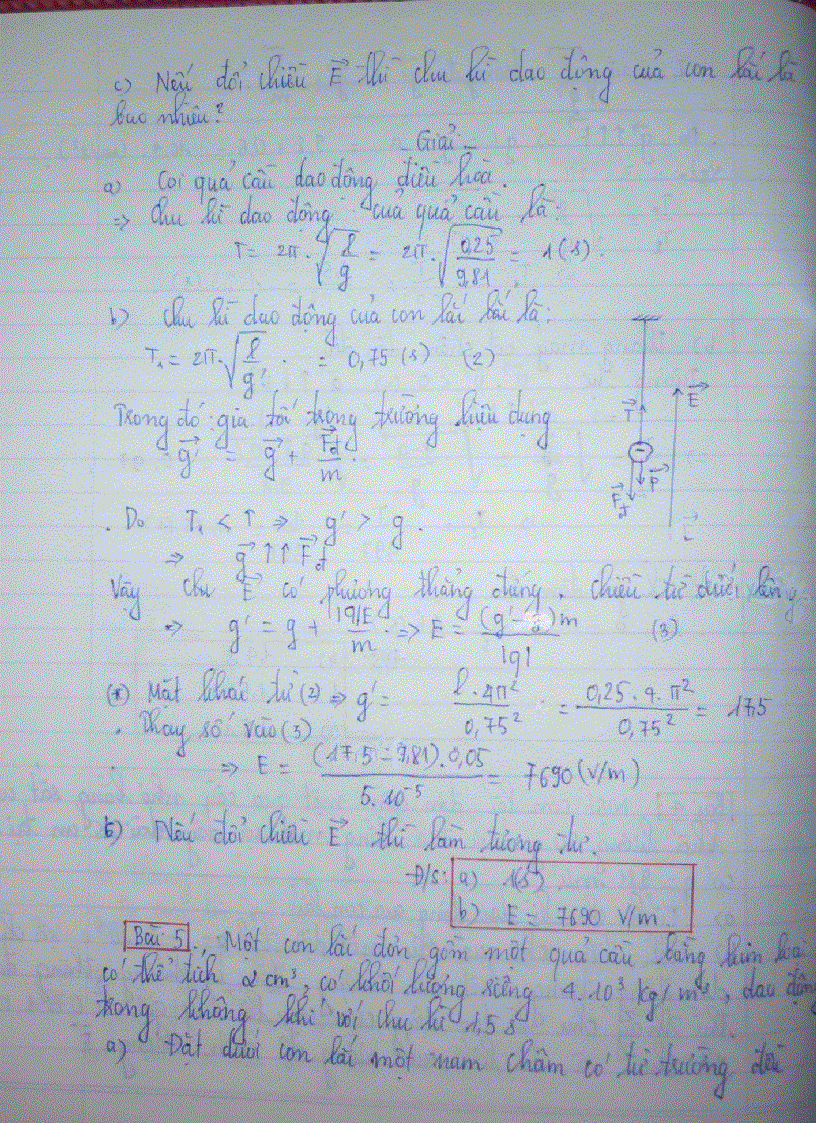 c) Nếu đổi chiều E→ thì chu kì dao động của con lắc là
bao nhiêu?
_Giải_
a) Coi quả cầu dao động điều hoà.
=> Chu kì dao động của quả cầu là:
T = 2π.√(l/g) = 2π.√(0,25/9,81) = 1(s).
b) Chu kì dao động của con lắc lúc là:
T₁ = 2π.√(l/g') . = 0,75(s) (2)
Trong đó: gia tốc trọng trường hiệu dụng
g'→ = g→ + F→đ/m.
. Do T₁ < T => g' > g.
=> g→ ↑↑ F→đ
T→
E→
P→
F→đ
Vậy E→ có phương thẳng đứng, chiều từ dưới lên
=> g' = g + |q|E/m . => E = (g'-g)m/|q| (3)
(*) Mặt khác từ (2) => g' = l.4π²/0,75² . = 0,25.4.π²/0,75² = 17,5
. Thay số vào (3)
=> E = (17,5-9,81).0,05/5.10⁻⁵ = 7690 (V/m)
Nếu đổi chiều E→ thì làm tương tự.
Đ/s: a) 1(s)
b) E = 7690 V/m.
Bài 5., Một con lắc đơn gồm một quả cầu bằng kim loại
có thể tích 2 cm³, có khối lượng riêng 4.10³ kg/m³, dao động
trong không khí với chu kì 1,5s
a) Đặt dưới con lắc một nam châm có từ trường đều